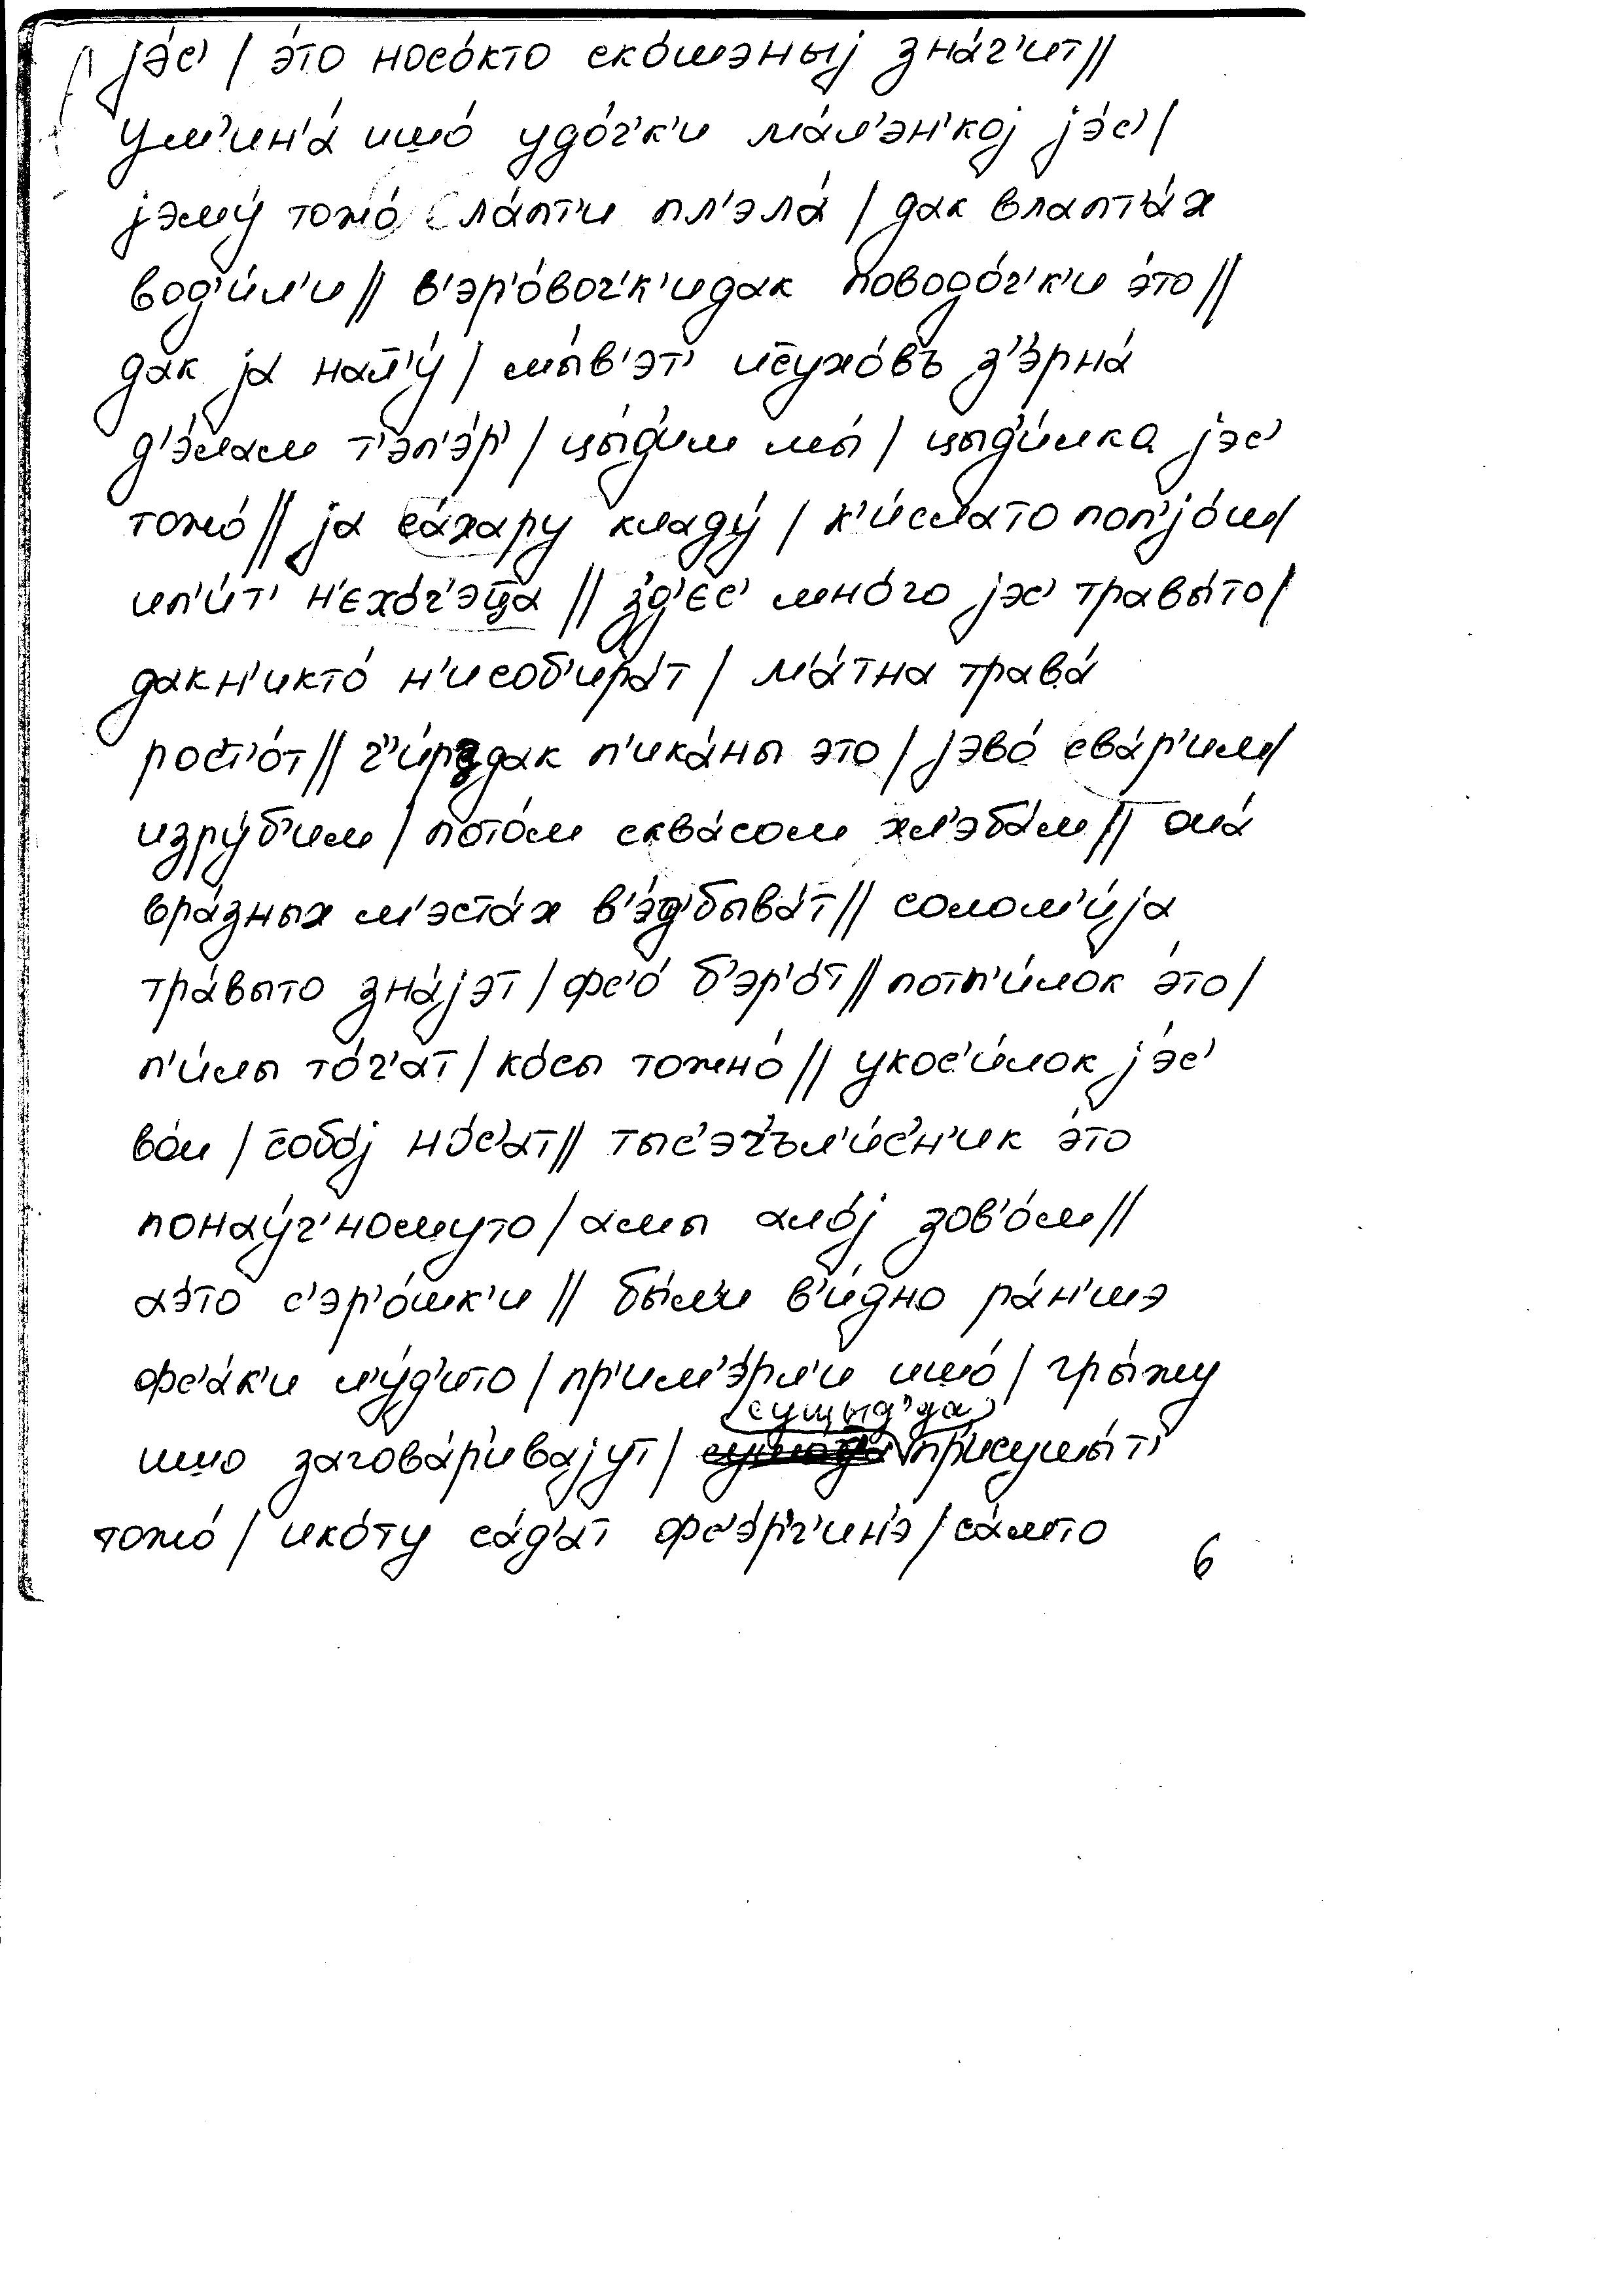 jэ́с' / э́то носо́кто ско́шэныj зна́ч'ит //
ум'ин'а́ ишо́ удо́ч'к'и ма́л'эн'коj jэ́с' /
jэму́ тожо́ ла́пт'и пл'эла́ / дак влапт'а́х
вод'и́л'и // в'эр'о́воч'к'идак поводо́ч'к'и э́то //
дак jа нал'у́ / мы́в'эт' ис̄ухо́въ з'э́рна́
д'э́лам т'эп'э́р' / цы́д'им мы́ / цыд'и́лка jэс'
тожо́ // jа са́хару кладу́ / к'и́слато поп'jо́ш /
ип'и́т' н'ехо́ч'эц̄а // з'д'е́с' мно́го jэс' травы́то /
дакн'икто́ н'исоб'ира́т / м'а́тна трава́
рос'т'о́т // ч'и́рздак п'ика́ны это / jэво́ свар'им /
изру́б'им / пото́м сква́сом хл'эба́м // она́
вра́зных м'эста́х в'э́д'быва́т // солом'и́jа
тра́выто зна́jэт / фс'о́ б'эр'о́т // потп'и́лок э́то /
п'и́лы то́ч'ат / ко́сы тожно́ // укос'и́лок jэ́с'
во́и / с̄обо́j но́с'ат // тыс'эч'ъл'и́с'н'ик э́то
понау́ч'номуто / амы ало́j зов'о́м //
аэ́то с'эр'о́шк'и // бы́л'и в'и́дно ра́н'шэ
фс'а́к'и л'у́д'ито / пр'им'э́рл'и ишо́ / гры́жу
ишо загова́р'ивajут / сущыд'да пр'исушы́т'
тожо́ / ико́ту са́д'ат фс'э́рч'ин'э / са́мто
6